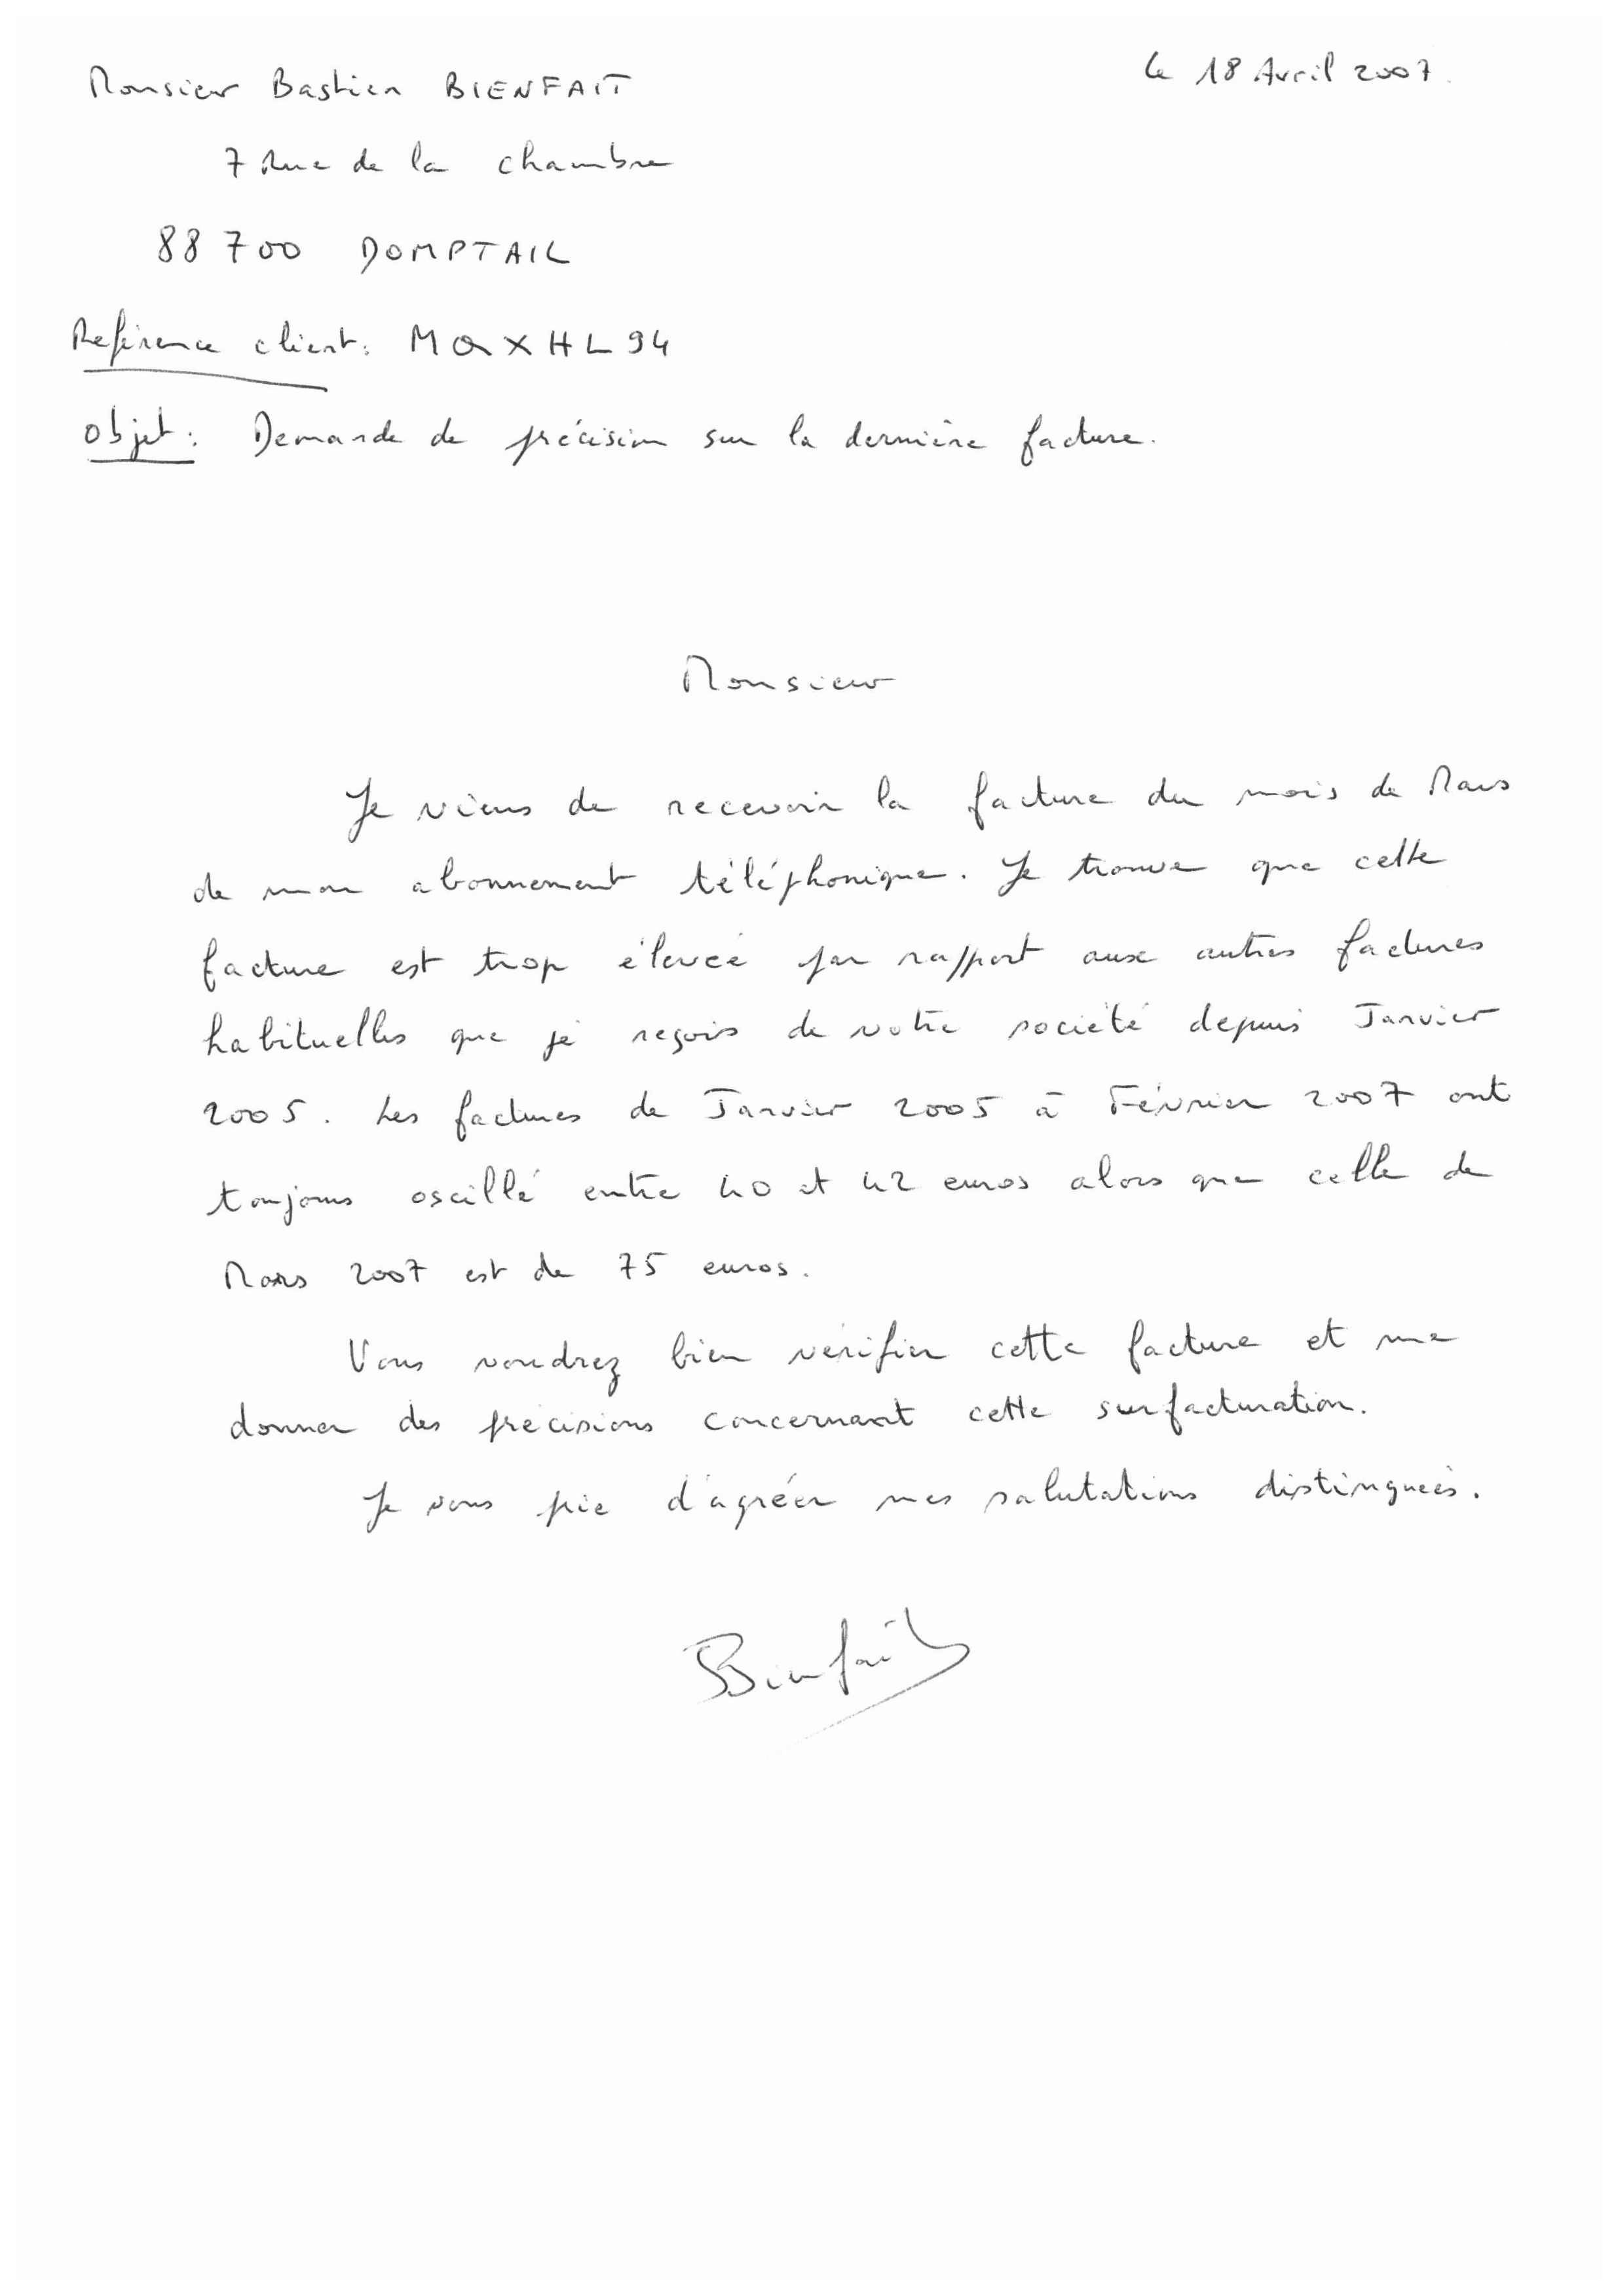 Monsieur Bastien BIENFAIT
le 18 Avril 2007.
7 Rue de la chambre
88700 DOMPTAIL
Reférence client : MQXHL94
Objet : Demande de précision sur la dernière facture.
Monsieur
Je viens de recevoir la facture du mois de Mars
de mon abonnement téléphonique. Je trouve que cette
facture est trop élevée par rapport aux autres factures
habituelles que je reçois de votre société depuis Janvier
2005. Les factures de Janvier 2005 à Février 2007 ont
toujours oscillé entre 40 et 42 euros alors que celle de
Mars 2007 est de 75 euros.
Vous voudrez bien vérifier cette facture et me
donner des précisions concernant cette surfacturation.
Je vous prie d'agréer mes salutations distinguées.
Bienfait